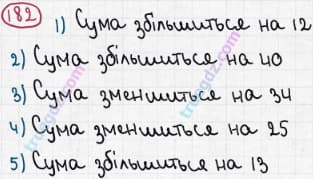 182 1) Сума збільшиться на 12
2) Сума збільшиться на 40
3) Сума зменшиться на 34
4) Сума зменшиться на 25
5) Сума збільшиться на 13